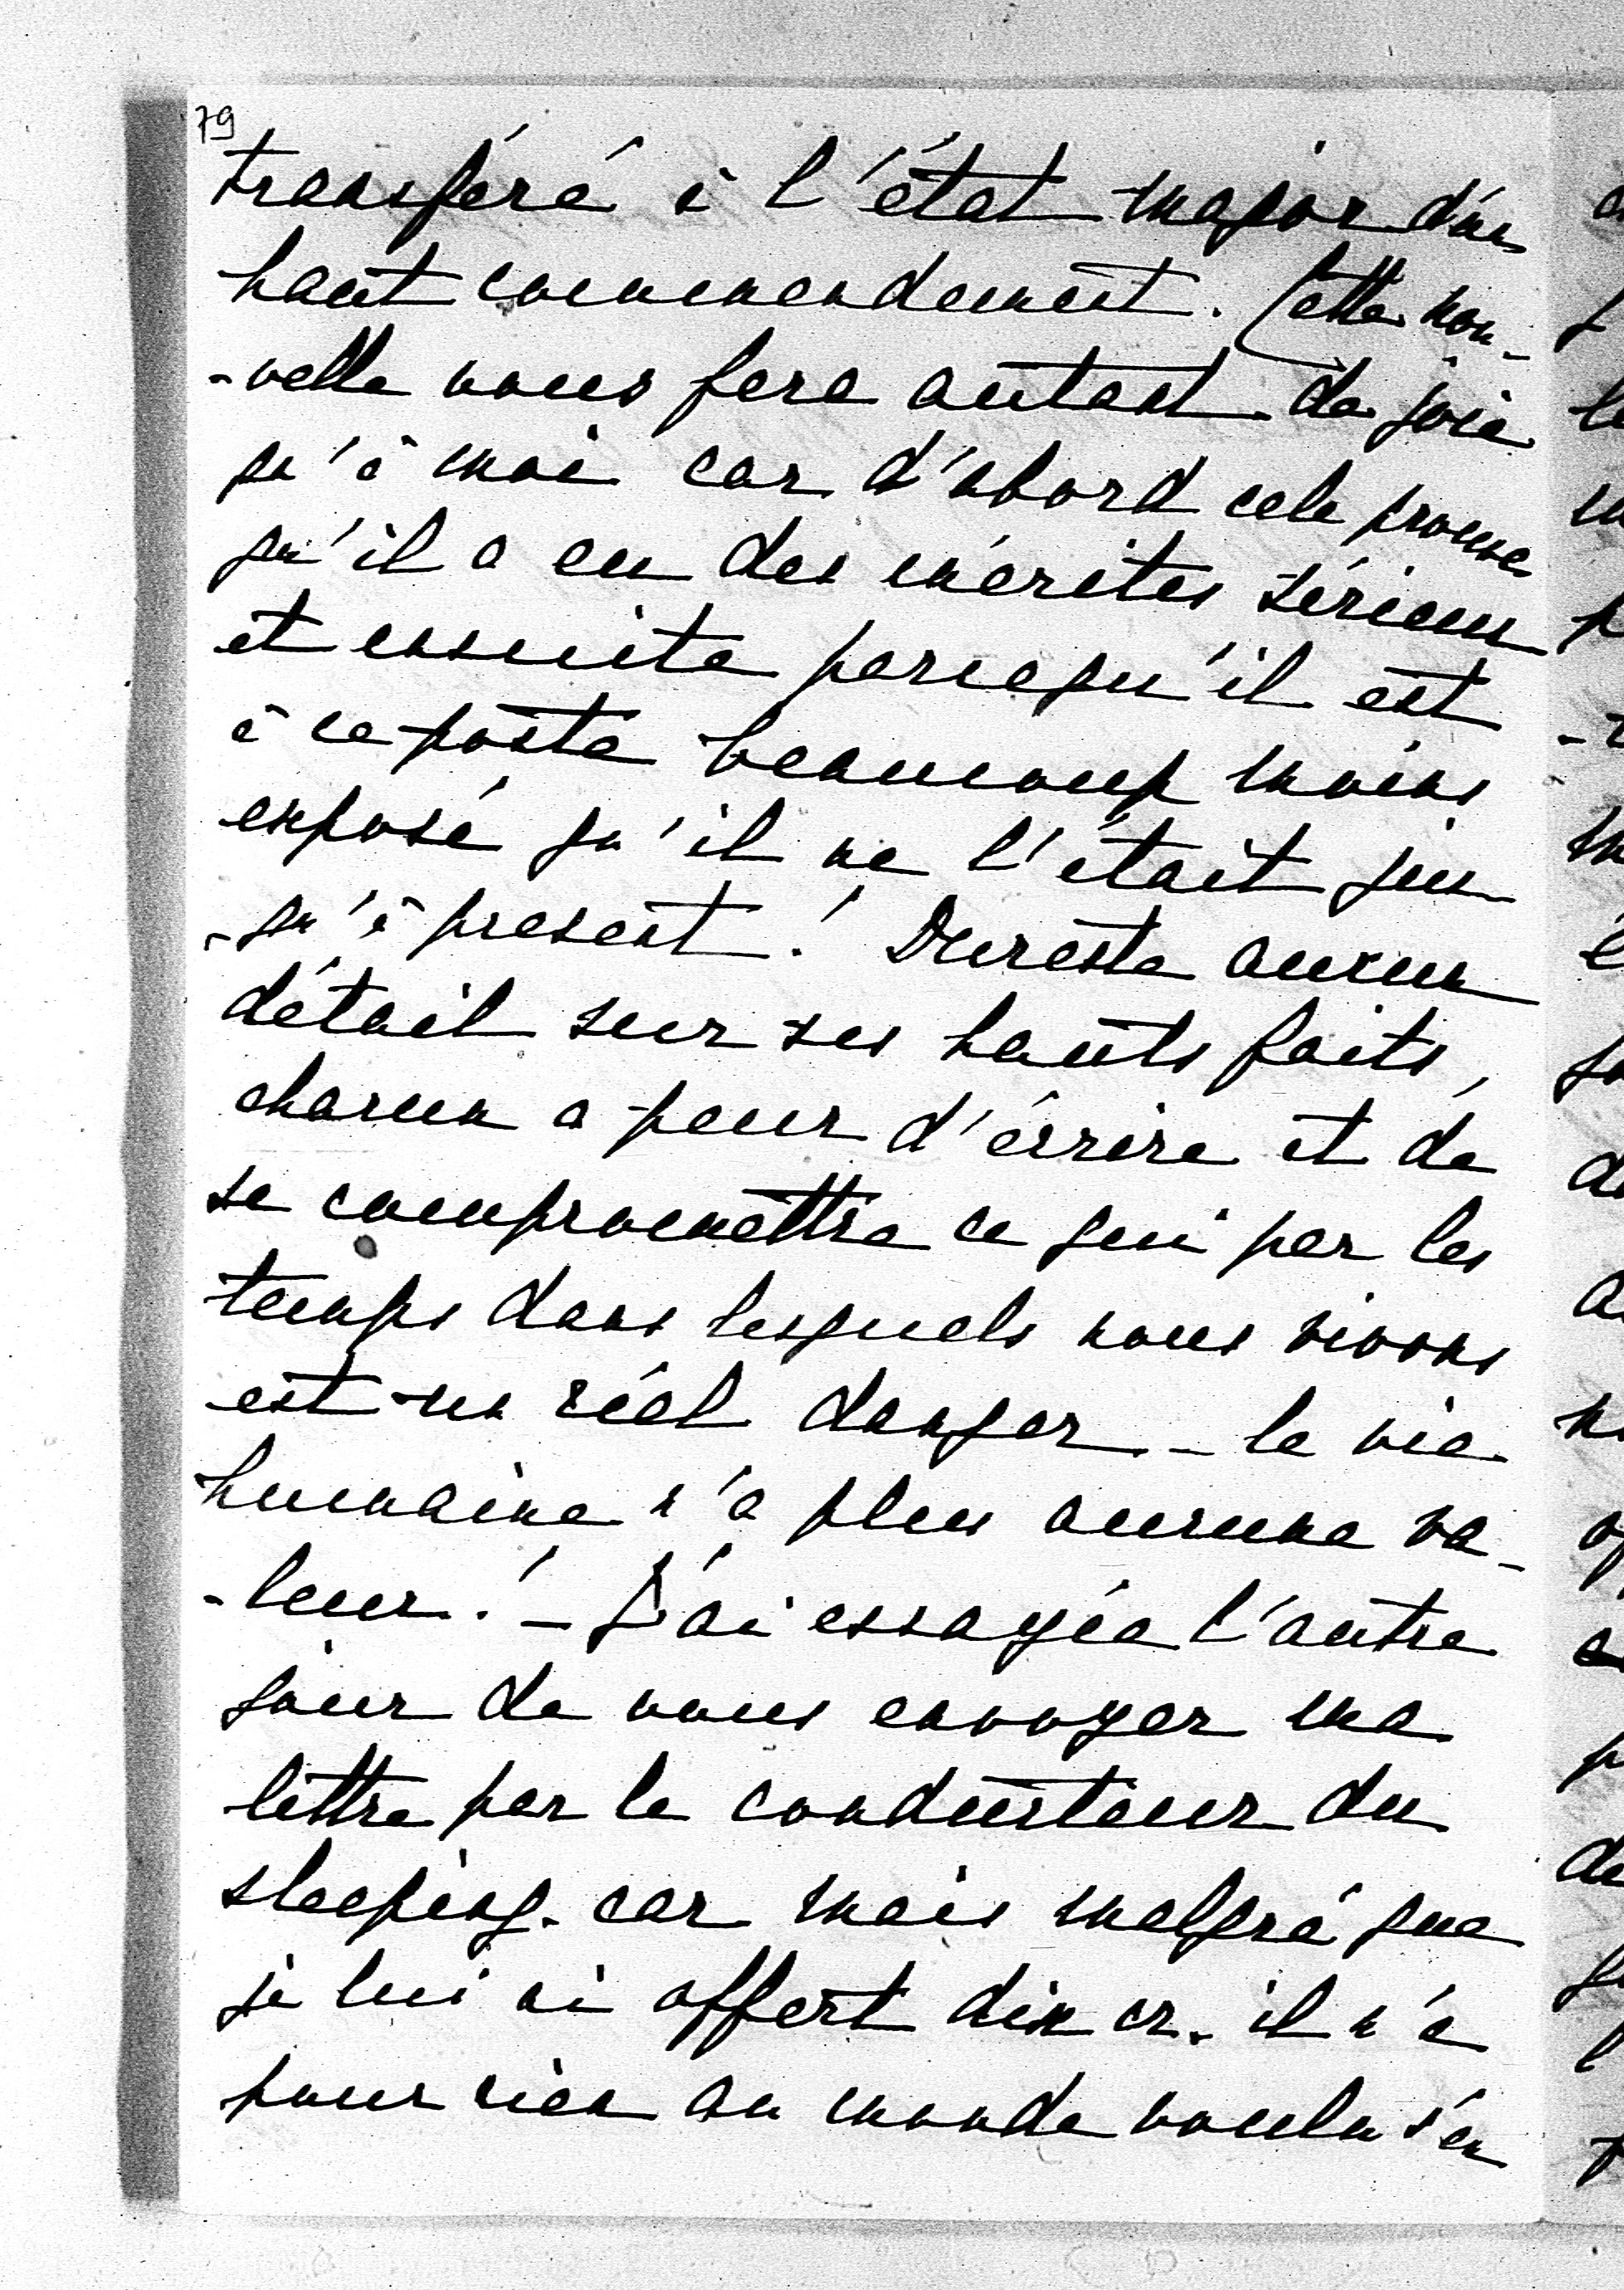 79
transféré à l'état major d'un
haut commandement. Cette nou-
-velle vous fera autant de joie
qu'à moi car d'abord cela prouve
qu'il a eu des mérites sérieux
et ensuite parcequ'il est
à ce poste beaucoup moins
exposé qu'il ne l'était jus-
-qu'à présent! Dureste aucun
détail sur ses hauts faits,
chacun a peur d'écrire et de
se compromettre ce qui par les
temps dans lesquels nous vivons
est un réel danger – la vie
humaine n'a plus aucune va-
-leur! – J'ai essayée l'autre
jour de vous envoyer ma
lettre par le conducteur du
sleeping-car mais malgré que
je lui ai offert dix cr. il n'a
pour rien au monde voulu s'en